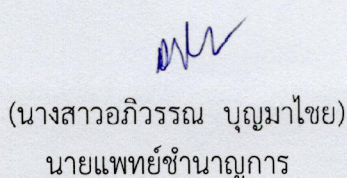 (นางสาวอภิวรรณ บุญมาไชย)
นายแพทย์ชำนาญการ